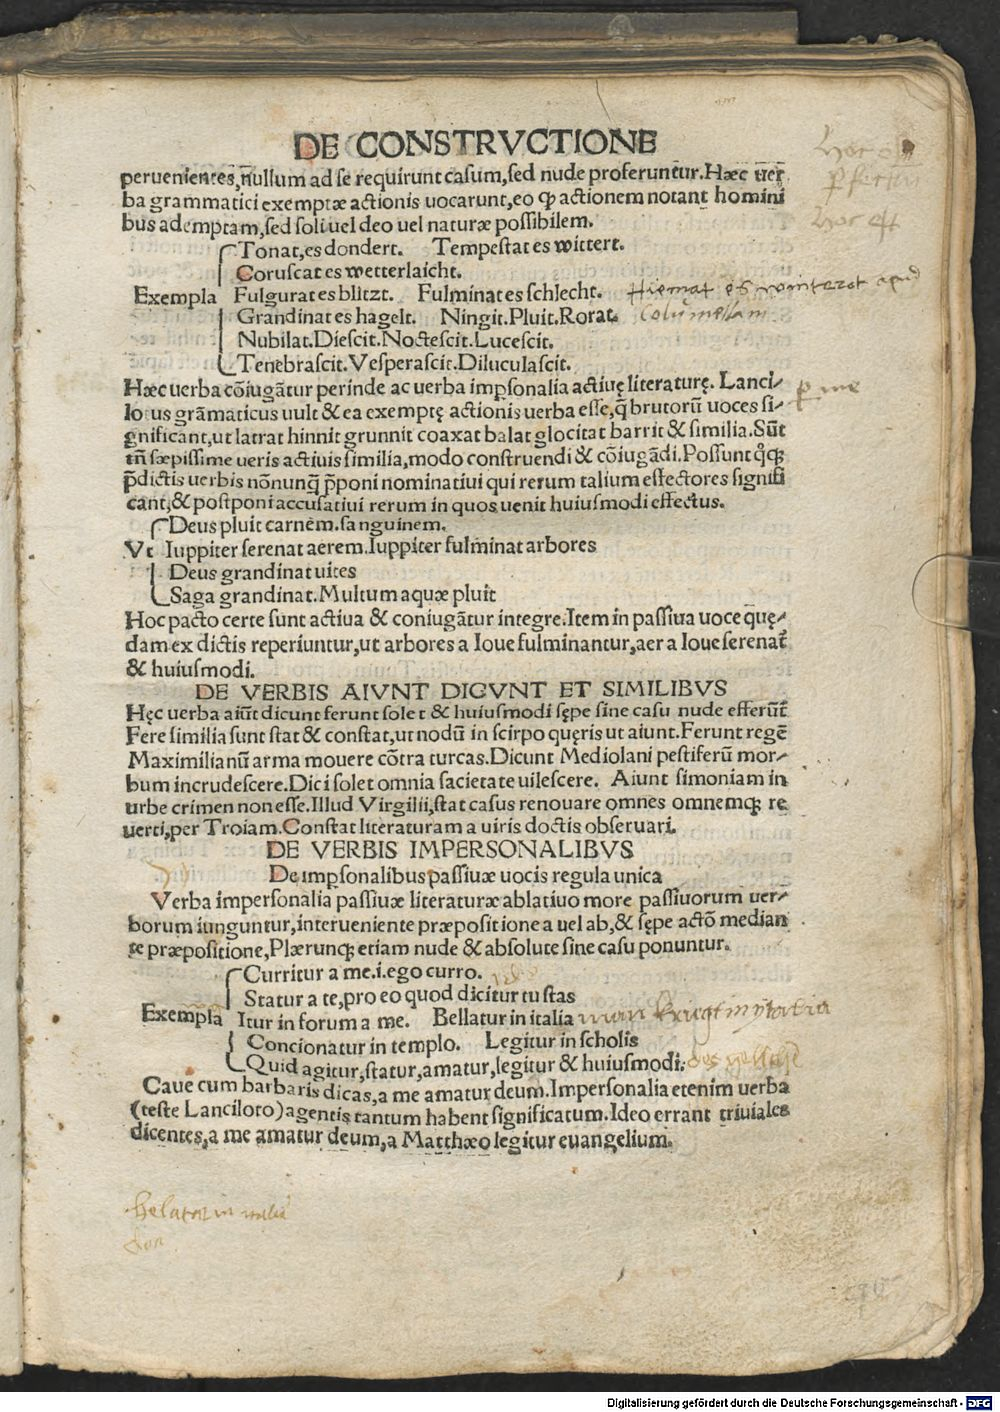 DE CONSTRVCTIONE
peruenientes,nullum ad se requirunt casum,sed nude proferunt̃ur.Hæc uer
ba grammatici exemptæ actionis uocarunt,eo ꝙ actionem notant homini
bus ademptam,sed soli uel deo uel naturæ possibilem.
Tonat,es dondert. Tempestat es wittert.
Coruscat es wetterlaicht.
Exempla Fulgurat es blitzt. Fulminat es schlecht. Hiemat es wintert apud
Grandinat es hagelt. Ningit.Pluit.Rorat. Columellam
Nubilat.Diescit.Noctescit.Lucescit.
Tenebrascit.Vesperascit.Diluculascit.
Hæc uerba cõiugãtur perinde ac uerba imꝑsonalia actiuę literaturę. Lanci⸗
lotus grãmaticus uult & ea exemptę actionis uerba esse,q̃ brutorũ uoces si⸗
gnificant,ut latrat hinnit grunnit coaxat balat glocitat barrit & similia.Sũt
tñ sæpissime ueris actiuis similia,modo construendi & cõiugãdi.Possunt qͦꝙ
p̃dictis uerbis nõnunq̃ p̃poni nominatiui qui rerum talium effectores signifi
cant,& postponi accusatiui rerum in quos uenit huiusmodi effectus.
Deus pluit carnem.sanguinem.
Vt Iuppiter serenat aerem.Iuppiter fulminat arbores
Deus grandinat uites
Saga grandinat.Multum aquæ pluit
Hoc pacto certe sunt actiua & coniugãtur integre.Item in passiua uoce quę⸗
dam ex dictis reperiuntur,ut arbores a Ioue fulminantur,aer a Ioue serenat̃
& huiusmodi.
DE VERBIS AIVNT DICVNT ET SIMILIBVS
Hęc uerba aiũt dicunt ferunt solet & huiusmodi sępe sine casu nude efferũt̃
Fere similia sunt stat & constat,ut nodũ in scirpo quęris ut aiunt.Ferunt regẽ
Maximilianũ arma mouere cõtra turcas.Dicunt Mediolani pestiferũ mor⸗
bum incrudescere.Dici solet omnia sacietate uilescere. Aiunt simoniam in
urbe crimen non esse.Illud Virgilii,stat casus renouare omnes omnemꝙ re
uerti,per Troiam.Constat literaturam a uiris doctis obseruari.
DE VERBIS IMPERSONALIBVS
De imꝑsonalibus passiuæ uocis regula unica
Verba impersonalia passiuæ literaturæ ablatiuo more passiuorum uer⸗
borum iunguntur,interueniente præpositione a uel ab,& sępe actõ median
te præpositione,Plærunꝙ etiam nude & absolute sine casu ponuntur.
Curritur a me.i.ego curro.
Statur a te,pro eo quod dicitur tu stas
Exempla Itur in forum a me. Bellatur in italia man kriegt in ytalia
Concionatur in templo. Legitur in scholis
Quid agitur,statur,amatur,legitur & huiusmodi.
Caue cum barbaris dicas,a me amatur deum.Impersonalia etenim uerba
(teste Lanciloto)agentis tantum habent significatum.Ideo errant triuiales
dicentes,a me amatur deum,a Matthæo legitur euangelium.
Digitalisierung gefördert durch die Deutsche Forschungsgemeinschaft - DFG